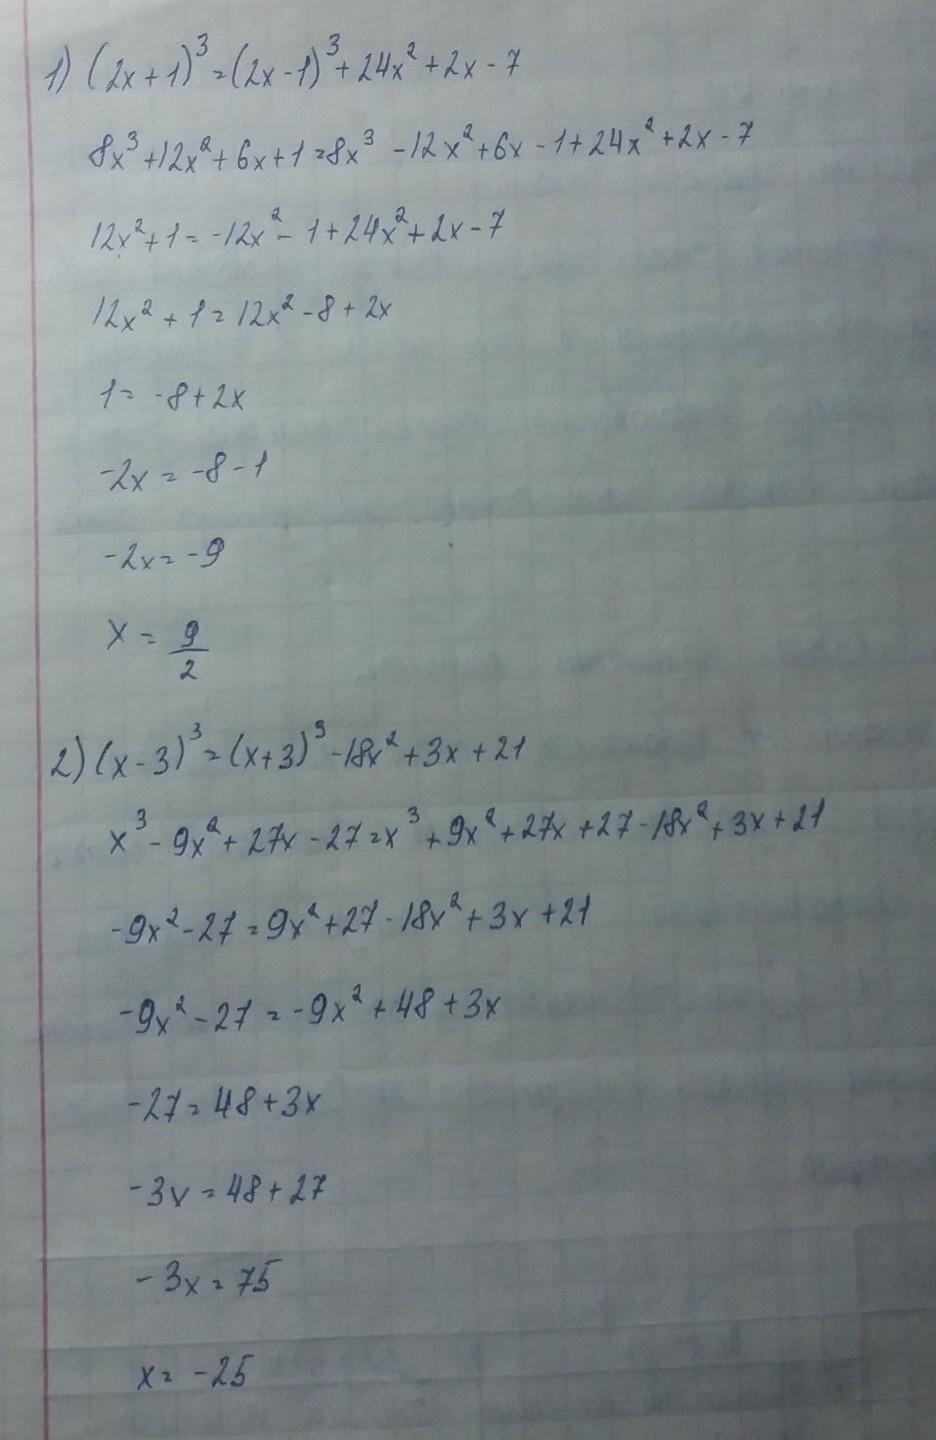 1) (2x+1)³=(2x-1)³+24x²+2x-7
8x³+12x²+6x+1=8x³-12x²+6x-1+24x²+2x-7
12x²+1=-12x²-1+24x²+2x-7
12x²+1=12x²-8+2x
1=-8+2x
-2x=-8-1
-2x=-9
x=9/2
2) (x-3)³=(x+3)³-18x²+3x+21
x³-9x²+27x-27=x³+9x²+27x+27-18x²+3x+21
-9x²-27=9x²+27-18x²+3x+21
-9x²-27=-9x²+48+3x
-27=48+3x
-3x=48+27
-3x=75
x=-25